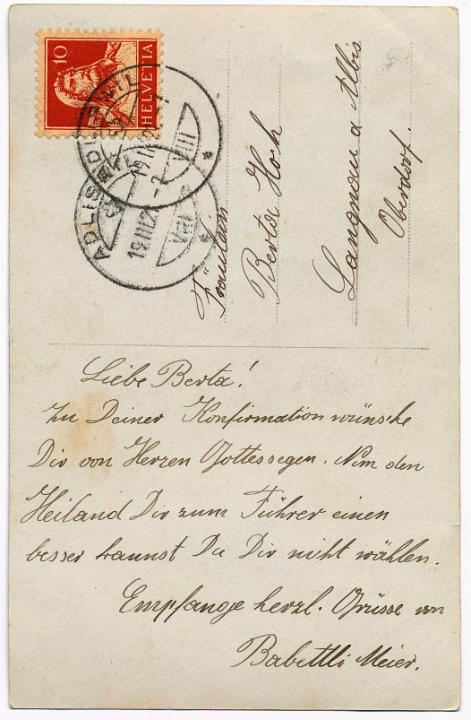 10
HELVETIA
ADLISWIL
19.III.2
VIII
ADLIS
19.III.2
VIII
Fräulein
Berta Hoh
Langnau a Albis
Oberdorf.
Liebe Berta!
Zu Deiner Konfirmation wünsche
Dir von Herzen Gottessegen. Nim den
Heiland Dir zum Führer einen
besser kannst Du Dir nicht wählen.
Empfange herzl. Grüsse von
Babettli Meier.